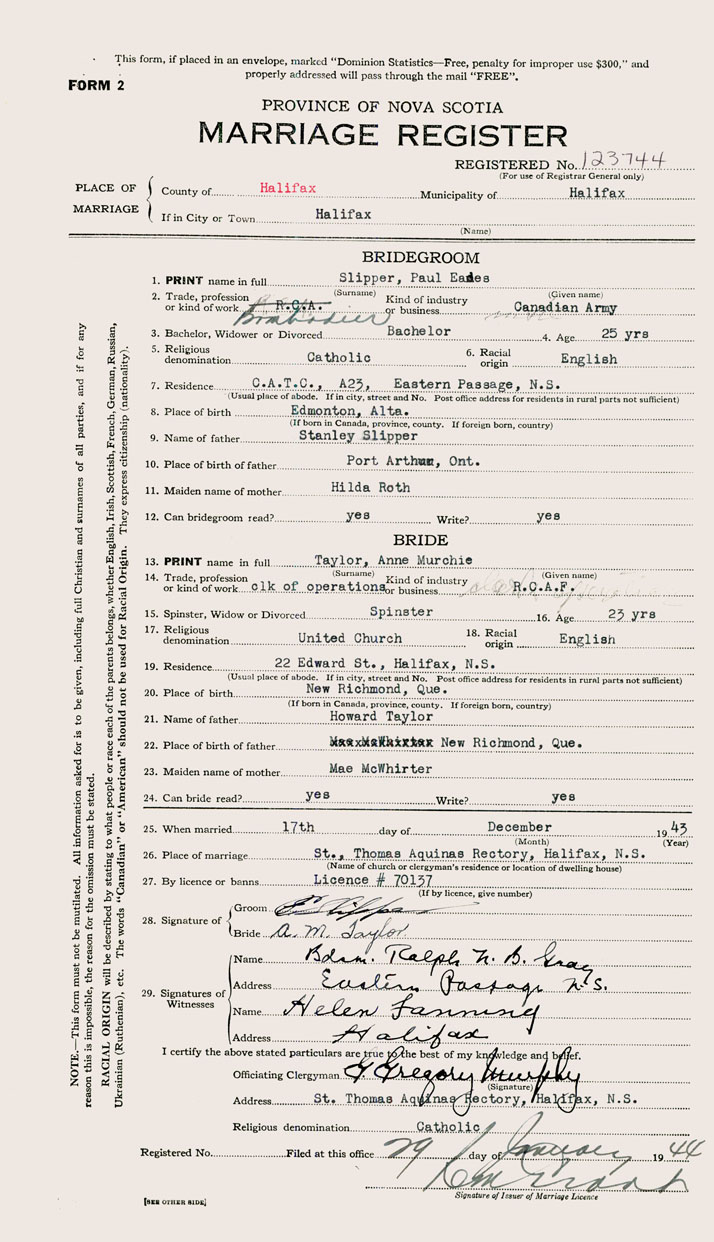 This form, if placed in an envelope, marked "Dominion Statistics—Free, penalty for improper use $300," and
properly addressed will pass through the mail "FREE".
FORM 2
PROVINCE OF NOVA SCOTIA
MARRIAGE REGISTER
REGISTERED No. 123744
(For use of Registrar General only)
PLACE OF MARRIAGE
County of Halifax Municipality of Halifax
If in City or Town Halifax
(Name)
BRIDEGROOM
1. PRINT name in full Slipper, Paul Eades
(Surname) (Given name)
2. Trade, profession or kind of work R.C.A. Bombadier Kind of industry or business Canadian Army
3. Bachelor, Widower or Divorced Bachelor 4. Age 25 yrs
5. Religious denomination Catholic 6. Racial origin English
7. Residence C.A.T.C., A23, Eastern Passage, N.S.
(Usual place of abode. If in city, street and No. Post office address for residents in rural parts not sufficient)
8. Place of birth Edmonton, Alta.
(If born in Canada, province, county. If foreign born, country)
9. Name of father Stanley Slipper
10. Place of birth of father Port Arthur, Ont.
11. Maiden name of mother Hilda Roth
12. Can bridegroom read? yes Write? yes
BRIDE
13. PRINT name in full Taylor, Anne Murchie
(Surname) (Given name)
14. Trade, profession or kind of work clk of operations Kind of industry or business R.C.A.F.
15. Spinster, Widow or Divorced Spinster 16. Age 23 yrs
17. Religious denomination United Church 18. Racial origin English
19. Residence 22 Edward St., Halifax, N.S.
(Usual place of abode. If in city, street and No. Post office address for residents in rural parts not sufficient)
20. Place of birth New Richmond, Que.
(If born in Canada, province, county. If foreign born, country)
21. Name of father Howard Taylor
22. Place of birth of father New Richmond, Que.
23. Maiden name of mother Mae McWhirter
24. Can bride read? yes Write? yes
25. When married 17th day of December 1943
(Month) (Year)
26. Place of marriage St., Thomas Aquinas Rectory, Halifax, N.S.
(Name of church or clergyman's residence or location of dwelling house)
27. By licence or banns Licence # 70137
(If by licence, give number)
28. Signature of
Groom
Bride A. M. Taylor
29. Signatures of Witnesses
Name Bdm. Ralph N. B. Gray
Address Eastern Passage N.S.
Name Helen Fanning
Address Halifax
I certify the above stated particulars are true to the best of my knowledge and belief.
Officiating Clergyman G Gregory Murphy
(Signature)
Address St. Thomas Aquinas Rectory, Halifax, N.S.
Religious denomination Catholic
Registered No. Filed at this office 29 day of January 1944
Signature of Issuer of Marriage Licence
[SEE OTHER SIDE]
NOTE.—This form must not be mutilated. All information asked for is to be given, including full Christian and surnames of all parties, and if for any
reason this is impossible, the reason for the omission must be stated.
RACIAL ORIGIN will be described by stating to what people or race each of the parents belongs, whether English, Irish, Scottish, French, German, Russian,
Ukrainian (Ruthenian), etc. The words "Canadian" or "American" should not be used for Racial Origin. They express citizenship (nationality).